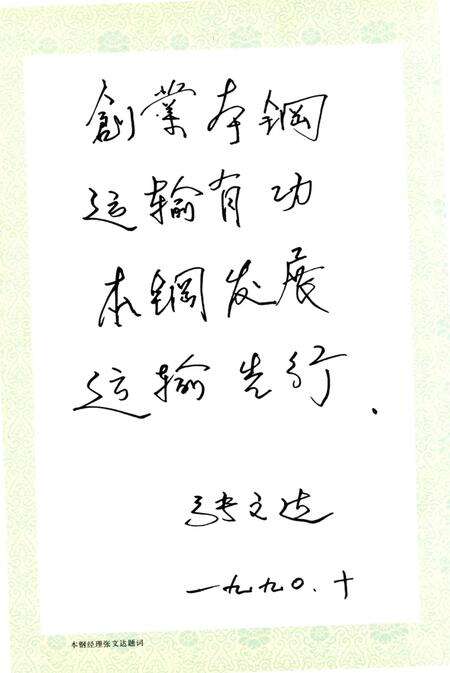 創業本钢
运输有功
本钢发展
运输先行.
张文达
一九九〇.十
本钢经理张文达题词